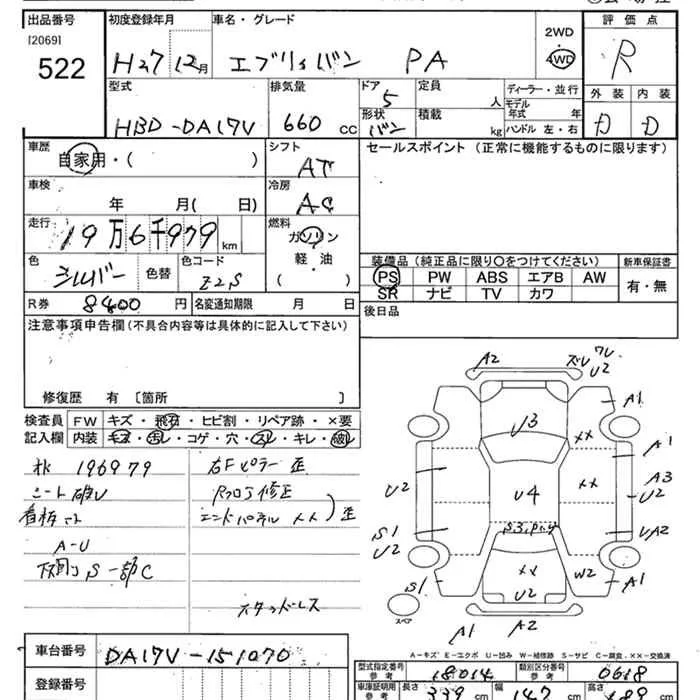 出品番号
[2069]
522
初度登録年月
H27 12月
車名・グレード
エブリィバン PA
2WD
・
4WD
評価点
R
型式
HBD-DA17V
排気量
660 cc
ドア
5
形状
バン
定員
人
積載
kg
ディーラー・並行
モデル
年式 年
ハンドル 左・右
外装 内装
D D
車歴
自家用・( )
シフト
AT
セールスポイント (正常に機能するものに限ります)
車検
年 月( 日)
冷房
AC
走行
19万6千979 km
燃料
ガソリン
軽・油
( )
色
シルバー
色替
色コード
Z2S
装備品 (純正品に限り○をつけてください)
PS PW ABS エアB AW
SR ナビ TV カワ
新車保証書
有・無
R券 8400 円
名変通知期限 月 日
後日品
注意事項申告欄 (不具合内容等は具体的に記入して下さい)
修復歴 有 〔箇所 〕
検査員
記入欄
FW キズ・飛石・ヒビ割・リペア跡・×要
内装 キズ・汚レ・コゲ・穴・スレ・キレ・破レ
196979
シート破レ
A-U
下廻り S 一部C
右Fピラー 歪
Rフロア修正
エンドパネル ×× 歪
スタッドレス
A2
U2
A1
U3
××
A1
U2
U4
××
A3
U2
S1
U2
UA2
S1
××
U2
W2
A1
スペア
A1 A2
A-キズ E-エクボ U-凹み W-補修跡 S-サビ C-腐食 ××-交換済
車台番号
DA17V-151070
登録番号
型式指定番号
参考
18014
類別区分番号
参考
0618
車庫証明用
参考
長さ 339 cm
幅 147 cm
高さ
cm